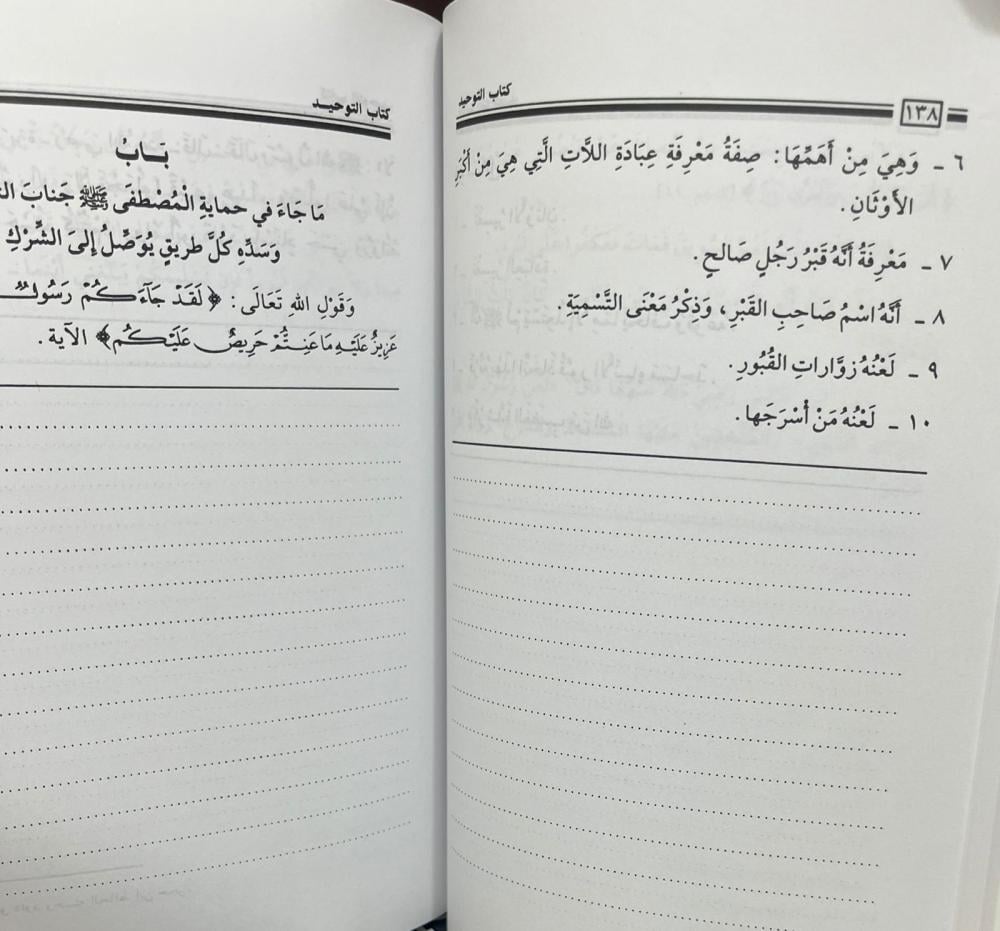 ١٣٨
كتاب التوحيد
٦ ـ وَهِيَ مِنْ أَهَمِّهَا: صِفَةُ مَعْرِفَةِ عِبَادَةِ اللاَّتِ الَّتِي هِيَ مِنْ أَكْبَرِ
الأَوْثَانِ.
٧ ـ مَعْرِفَةُ أَنَّهُ قَبْرُ رَجُلٍ صَالِحٍ.
٨ ـ أَنَّهُ اسْمُ صَاحِبِ القَبْرِ، وَذِكْرُ مَعْنَى التَّسْمِيَةِ.
٩ ـ لَعْنُهُ زَوَّارَاتِ القُبُورِ.
١٠ ـ لَعْنُهُ مَنْ أَسْرَجَها.
كتاب التوحيـد
بَـابُ
مَا جَاءَ في حمايةِ الْمُصْطَفَى ﷺ جَنابَ
وَسَدِّهِ كُلَّ طريقٍ يُوَصِّلُ إلىَ الشِّرْكِ
وَقَوْلِ اللهِ تَعَالَى: ﴿لَقَدْ جَآءَكُمْ رَسُولٌ
عَزِيزٌ عَلَيْهِ مَا عَنِتُّمْ حَرِيصٌ عَلَيْكُم﴾ الآية.